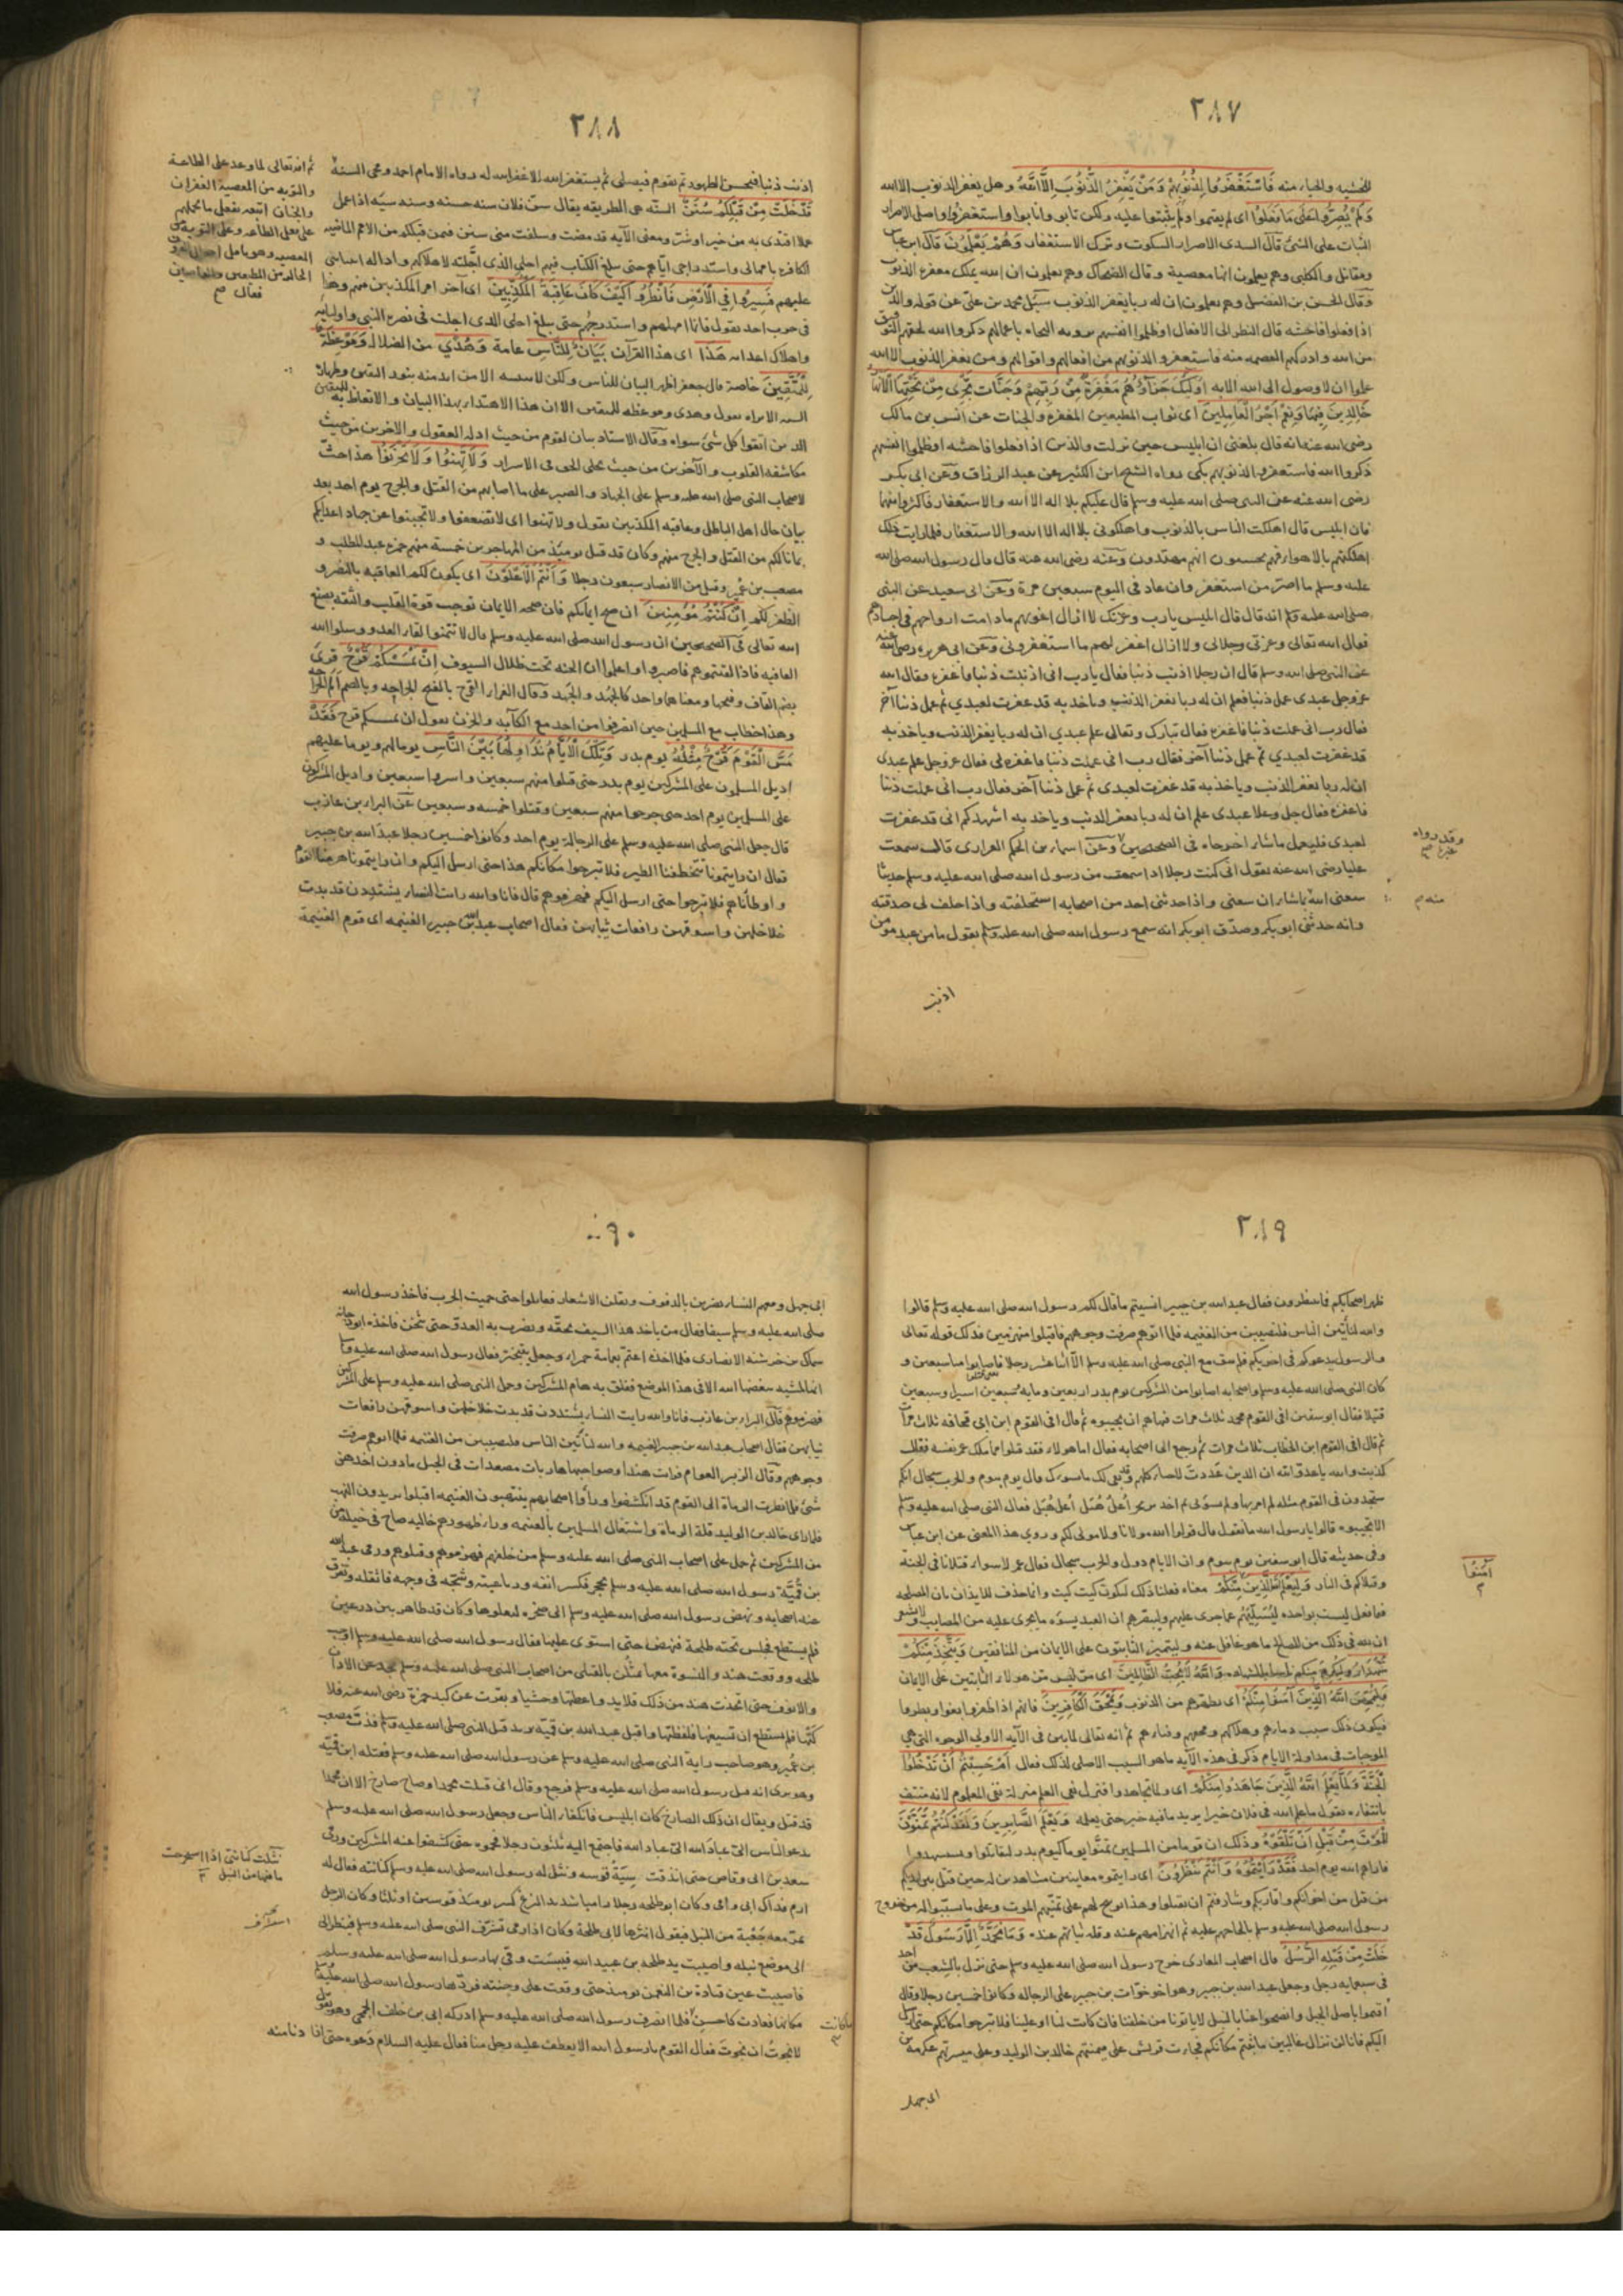 ٢٨٧
للخشيه والحيا منه فَاسْتَغْفَرُوا لِذُنُوبِهِمْ وَمَنْ يَغْفِرُ الذُّنُوبَ اِلَّا اللهُ وهل يغفر الذنوب الا الله
وَلَمْ يُصِرُّوا عَلَى مَا فَعَلُوْا اى لم يقيموا ولم يثبتوا عليه ولكن تابو وانابوا واستغفروا واصل الاصرار
الثبات على الشئ قال السدى الاصرار السكوت وترك الاستغفار وَهُمْ يَعْلَمُونَ قال ابن عباس
ومقاتل والكلبى وهم يعلمون انها معصية وقال الضحاك وهم يعلمون ان الله يملك مغفرة الذنوب
وقال الحسن بن الفضيل وهم يعلمون ان له ربا يغفر الذنوب سئل محمد بن على عن قوله والذين
اذا فعلوا فاحشه قال النظر الى الافعال اوظلموا انفسهم برويه النجاة باعمالهم ذكروا الله لحقهم التوفيق
من الله وادركهم العصمه منه فاستغفروا لذنوبهم من افعالهم واقوالهم ومن يغفر الذنوب الا الله
علموا ان لا وصول الى الله الا به اُولَئِكَ جَزَاؤُهُمْ مَغْفِرَةٌ مِنْ رَبِّهِمْ وَجَنَّات تَجْرِى مِنْ تَحْتِهَا الْاَنْهَارُ
خَالِدِينَ فِيهَا وَنِعْمَ اَجْرُ الْعَامِلِينَ اى ثواب المطيعين المغفرة والجنات عن انس بن مالك
رضى الله عنه انه قال بلغنى ان ابليس حين نزلت والذين اذا فعلوا فاحشه اوظلموا انفسهم
ذكروا الله فاستغفروا لذنوبهم بكى رواه الشيخ ابن الكثير عن عبد الرزاق وعن ابى بكر
رضى الله عنه عن النبى صلى الله عليه وسلم قال عليكم بلا اله الا الله والاستغفار فاكثروا منهما
فان ابليس قال اهلكت الناس بالذنوب واهلكونى بلا اله الا الله والاستغفار فلما رايت ذلك
اهلكتهم بالاهواء فهم يحسبون انهم مهتدون وعنه رضى الله عنه قال قال رسول الله صلى الله
عليه وسلم ما اصر من استغفر وان عاد فى اليوم سبعين مرة وعن ابى سعيد عن النبى
صلى الله عليه وسلم انه قال قال ابليس يارب وعزتك لا ازال اغويهم مادامت ارواحهم فى اجسادهم
فقال الله تعالى وعزتى وجلالى ولا ازال اغفر لهم ما استغفرونى وعن ابى هريره رضى الله عنه
عن النبى صلى الله وسلم قال ان رجلا اذنب ذنبا فقال يارب انى اذنبت ذنبا فاغفره فقال الله
عز وجل عبدى عمل ذنبا فعلم ان له ربا يغفر الذنب وياخذ به قد غفرت لعبدي ثم عمل ذنبا آخر
فقال رب انى عملت ذنبا فاغفره فقال تبارك وتعالى علم عبدي ان له ربا يغفر الذنب وياخذ به
قد غفرت لعبدي ثم عمل ذنبا آخر فقال رب انى عملت ذنبا فاغفره لى فقال عز وجل علم عبدى
ان له ربا يغفر الذنب وياخذ به قد غفرت لعبدى ثم عمل ذنبا آخر فقال رب انى عملت ذنبا
فاغفره فقال جل وعلا عبدى علم ان له ربا يغفر الذنب وياخذ به اشهدكم انى قد غفرت
لعبدى فليعمل ماشاء اخرجاه فى الصحيحين وعن اسماء بن الحكم الفزارى قالت سمعت
عليا رضى الله عنه يقول انى كنت رجلا اذا سمعت من رسول الله صلى الله عليه وسلم حديثا
نفعنى الله ماشاء ان ينفعنى واذا حدثنى احد من اصحابه استحلفته واذا حلف لى صدقته
وانه حدثنى ابو بكر وصدق ابو بكر انه سمع رسول الله صلى الله عليه وسلم يقول ما من عبد مومن
وقد رواه
غيره
منه م
اذنب
٢٨٨
اذنب ذنبا فيحسن الطهور ثم يقوم فيصلى ثم يستغفر الله الا غفر الله له رواه الامام احمد ومحى السنة
قَدْ خَلَتْ مِنْ قَبْلِكُمْ سُنَنٌ السنه هى الطريقه يقال سن فلان سنه حسنه وسنه سيئه اذا عمل
عملا اقتدى به من خير او شر ومعنى الآيه قد مضت وسلفت منى سنن فيمن قبلكم من الامم الماضيه
الكافره بامهالى واستدراجى اياهم حتى يبلغ الكتاب فيهم اجلى الذى اجلته لاهلاكهم وادالة انبيائى
عليهم فَسِيرُوا فِي الْاَرْضِ فَانْظُرُوا كَيْفَ كَانَ عَاقِبَةُ الْمُكَذِّبِينَ اى آخر امر المكذبين منهم وهذا
فى حرب احد يقول فانا امهلهم واستدرجهم حتى يبلغ اجلى الذى اجلت فى نصرة النبى واوليائه
واهلاك اعدائه هَذَا اى هذا القرآن بَيَانٌ لِلنَّاسِ عامة وَهُدًي من الضلاله وَمَوْعِظَةٌ
لِلْمُتَّقِينَ خاصة قال جعفر اظهر البيان للناس ولكن لا يتبينه الا من ايد منه بنور اليقين وطهارة
السر الا تراه يقول وهدى وموعظه للمتقين الا ان هذا الاهتداء بهذا البيان والاتعاظ به للمتقين
الذين اتقوا كل شئ سواه وقال الاستاد بيان لقوم من حيث ادلة العقول ولاخرين من حيث
مكاشفة القلوب ولآخرين من حيث تجلى الحق فى الاسرار وَلَا تَهِنُوا وَلَا تَحْزَنُوا هذا حث
لاصحاب النبى صلى الله عليه وسلم على الجهاد والصبر على ما اصابهم من القتل والجرح يوم احد بعد
بيان حال اهل الباطل وعاقبة المكذبين يقول ولا تهنوا اى لا تضعفوا ولا تجبنوا عن جهاد اعدائكم
بما نالكم من القتل والجرح منهم وكان قد قتل يومئذ من المهاجرين خمسة منهم حمزه عبد المطلب و
مصعب بن عمير وقتل من الانصار سبعون رجلا وَاَنْتُمُ الْاَعْلَوْنَ اى يكون لكم العاقبه بالنصر و
الظفر لكم اِنْ كُنْتُمْ مُؤْمِنِينَ ان صح ايمانكم فان صحه الايمان توجب قوة القلب والثقه بصنع
الله تعالى فى الصحيحين ان رسول الله صلى الله عليه وسلم قال لا تتمنوا لقاء العدو وسلوا الله
العافيه فاذا لقيتموهم فاصبروا واعلموا ان الجنه تحت ظلال السيوف اِنْ يَمْسَسْكُمْ قَرْحٌ قرئ
بضم القاف وفتحها ومعناهما واحد كالجهد والجهد وقال الفراء القرح بالفتح الجراحه وبالضم الم الجراحه
وهذا خطاب مع المسلمين حين انصرفوا من احد مع الكآبه والحزن يقول ان يمسسكم قرح فَقَدْ
مَسَّ الْقَوْمَ قَرْحٌ مِثْلُهُ يوم بدر وَتِلْكَ الْاَيَّامُ نُدَاوِلُهَا بَيْنَ النَّاسِ يوما لهم ويوما عليهم
اديل المسلمون على المشركين يوم بدر حتى قتلوا منهم سبعين واسروا سبعين واديل المشركون
على المسلمين يوم احد حتى جرحوا منهم سبعين وقتلوا خمسه وسبعين عن البراء بن عازب
قال جعل النبى صلى الله عليه وسلم على الرجالة يوم احد وكانوا خمسين رجلا عبد الله بن جبير
فقال ان رايتمونا تخطفنا الطير فلا تبرحوا مكانكم هذا حتى ارسل اليكم وان رايتمونا هزمنا القوم
واوطأناهم فلا تبرحوا حتى ارسل اليكم فهزموهم قال فانا والله رايت النساء يشتددن قد بدت
خلاخلهن واسوقهن رافعات ثيابهن فقال اصحاب عبد الله بن جبير الغنيمه اى قوم الغنيمة
ثم انه تعالى لما وعد على الطاعة
والتوبه من المعصية الغفران
والجنان اتبعه بفعل ما يحملهم
على فعل الطاعه وعلى التوبه من
المعصيه وهو تامل احوال القرون
الخاليه من المطيعين والعاصين
فقال صح
٢٨٩
ظهر اصحابكم فما تنظرون فقال عبد الله بن جبير انسيتم ما قال لكم رسول الله صلى الله عليه وسلم قالوا
والله لنأتين الناس فلنصيبن من الغنيمه فلما اتوهم صرفت وجوههم فاقبلوا منهزمين فذلك قوله تعالى
والرسول يدعوكم فى اخريكم فلم يبق مع النبى صلى الله عليه وسلم الا اثنا عشر رجلا فاصابوا منا سبعين و
كان النبى صلى الله عليه وسلم واصحابه اصابوا من المشركين يوم بدر اربعين ومايه سبعين اسيرا وسبعين
قتيلا فقال ابو سفين افى القوم محمد ثلاث مرات فنهاهم ان يجيبوه ثم قال افى القوم ابن ابى قحافه ثلاث مرات
ثم قال افى القوم ابن الخطاب ثلاث مرات ثم رجع الى اصحابه فقال اما هولاء فقد قتلوا فما ملك عمر نفسه فقال
كذبت والله يا عدو الله ان الذين عددت لاحياء كلهم وقد بقى لك ما يسوءك قال يوم بيوم والحرب سجال انكم
ستجدون فى القوم مثله لم امر بها ولم تسؤنى ثم اخذ يرتجز اُعلُ هُبَل اُعلُ هُبَل فقال النبى صلى الله عليه وسلم
الا تجيبوه قالوا يا رسول الله ما نقول قال قولوا الله مولانا ولا مولى لكم وروي هذا المعنى عن ابن عباس
وفى حديثه قال ابو سفين يوم بيوم وان الايام دول والحرب سجال فقال عمر لا سواء قتلانا فى الجنة
وقتلاكم فى النار وَلِيَعْلَمَ اللهُ الَّذِينَ معناه فعلنا ذلك ليكون كيت كيت وانما حذف للايذان بان المصلحه
فيما فعل ليست بواحده ليُسَلِّيَهُم عما جرى عليهم وليبصرهم ان العبد يسوءه ما يجرى عليه من المصايب ولا يشعر
ان لله فى ذلك من المصالح ما هو غافل عنه وليتميز الثابتون على الايمان من المنافقين وَيَتَّخِذَ مِنْكُمْ
شُهَدَآءَ وليكرم منكم ناسا بالشهاده وَاللهُ لَا يُحِبُّ الظَّالِمِينَ اى من ليس من هولاء الثابتين على الايمان
وَلِيُمَحِّصَ اللهُ الَّذِينَ آمَنُوا اى يطهرهم من الذنوب وَيَمْحَقَ الْكَافِرِينَ فانهم اذا ظفروا بغوا وبطروا
فيكون ذلك سبب دمارهم وهلاكهم ومحقهم وفنائهم ثم انه تعالى لما بين فى الآيه الاولى الوجوه التى هى
الموجبات فى مداولة الايام ذكر فى هذه الآيه ما هو السبب الاصلى لذلك فقال اَمْ حَسِبْتُمْ اَنْ تَدْخُلُوا
الْجَنَّةَ وَلَمَّا يَعْلَمِ اللهُ الَّذِينَ جَاهَدُوا مِنْكُمْ اى ولما تجاهدوا فنزل نفى العلم منزلة نفى المعلوم لانه منتف
بانتفائه يقول ما علم الله فى فلان خيرا يريد ما فيه خير حتى يعلمه وَيَعْلَمَ الصَّابِرِينَ وَلَقَدْ كُنْتُمْ تَمَنَّوْنَ
الْمَوْتَ مِنْ قَبْلِ اَنْ تَلْقَوْهُ وذلك ان قوما من المسلمين تمنوا يوما كيوم بدر ليقاتلوا ويستشهدوا
فاراهم الله يوم احد فَقَدْ رَاَيْتُمُوهُ وَاَنْتُمْ تَنْظُرُونَ اى رايتموه معاينين مشاهدين له حين قتل بين ايديكم
من قتل من اخوانكم واقاربكم وشارفتم ان تقتلوا وهذا توبيخ لهم على تمنيهم الموت وعلى ما تسببوا له من خروج
رسول الله صلى الله عليه وسلم بالحاحهم عليه ثم انهزامهم عنه وقلة ثباتهم عنده وَمَا مُحَمَّدٌ اِلَّا رَسُولٌ قَدْ
خَلَتْ مِنْ قَبْلِهِ الرُّسُلُ قال اصحاب المغازى خرج رسول الله صلى الله عليه وسلم حتى نزل بالشعب من احد
فى سبعمايه رجل وجعل عبد الله بن جبير وهو اخو خوات بن جبير على الرجاله وكانوا خمسين رجلا وقال
اقيموا باصل الجبل وانضحوا عنا بالنبل لا ياتونا من خلفنا فان كانت لنا او علينا فلا تبرحوا مكانكم حتى ارسل
اليكم فانا لن نزال غالبين ما ثبتم مكانكم فجاءت قريش على ميمنتهم خالد بن الوليد وعلى ميسرتهم عكرمه بن
آمَنُوا
ابى جهل
٢٩٠
ابى جهل ومعهم النساء يضربن بالدفوف ويقلن الاشعار فقاتلوا حتى حميت الحرب فاخذ رسول الله
صلى الله عليه وسلم سيفا فقال من ياخذ هذا السيف بحقه ويضرب به العدو حتى يثخن فاخذه ابو دجانه
سماك بن خرشه الانصارى فلما اخذه اعتم بعمامة حمراء وجعل يتبختر فقال رسول الله صلى الله عليه وسلم
انها لمشيه يبغضها الله الا فى هذا الموضع ففلق به هام المشركين وحمل النبى صلى الله عليه وسلم على المشركين
فهزموهم قال البراء بن عازب فانا والله رايت النساء يشتددن قد بدت خلاخلهن واسوقهن رافعات
ثيابهن فقال اصحاب عبد الله بن جبير الغنيمه والله لنأتين الناس فلنصيبن من الغنيمه فلما اتوهم صرفت
وجوههم وقال الزبير العوام فرايت هندا وصواحبها هاربات مصعدات فى الجبل ما دون اخذهن
شئ فلما نظرت الرماة الى القوم قد انكشفوا ورأوا اصحابهم ينتهبون الغنيمه اقبلوا يريدون النهب
فلما راى خالد بن الوليد قلة الرماة واشتغال المسلمين بالغنيمه وراى ظهورهم خاليه صاح فى خيله من
من المشركين ثم حمل على اصحاب النبى صلى الله عليه وسلم من خلفهم فهزموهم وقتلوهم ورمى عبد الله
بن قميّة رسول الله صلى الله عليه وسلم بحجر فكسر انفه ورباعيته وشجه فى وجهه فاثقله وتفرق
عنه اصحابه ونهض رسول الله صلى الله عليه وسلم الى صخره ليعلوها وكان قد ظاهر بين درعين
فلم يستطع فجلس تحته طلحة فنهض حتى استوى عليها فقال رسول الله صلى الله عليه وسلم اوجب
طلحه ووقعت هند والنسوة معها يمثلن بالقتلى من اصحاب النبى صلى الله عليه وسلم يجدعن الاذان
والانوف حتى اتخذت هند من ذلك قلايد واعطتها وحشيا وبقرت عن كبد حمزة رضى الله عنه فلا
كتها فلم تستطع ان تسيغها فلفظتها واقبل عبد الله بن قميّة يريد قتل النبى صلى الله عليه وسلم فذب مصعب
بن عمير وهو صاحب راية النبى صلى الله عليه وسلم عن رسول الله صلى الله عليه وسلم فقتله ابن قميّة
وهو يرى انه قتل رسول الله صلى الله عليه وسلم فرجع وقال انى قتلت محمدا وصاح صارخ الا ان محمدا
قد قتل ويقال ان ذلك الصارخ كان ابليس فانكفأ الناس وجعل رسول الله صلى الله عليه وسلم
يدعو الناس الىّ عباد الله الىّ عباد الله فاجتمع اليه ثلثون رجلا فحموه حتى كشفوا عنه المشركين ورمى
سعد بن ابى وقاص حتى اندقت سِيَةُ قوسه ونثل له رسول الله صلى الله عليه وسلم كنانته فقال له
ارم فداك ابى وامى وكان ابو طلحه رجلا راميا شديد النزع كسر يومئذ قوسين او ثلثا وكان الرجل
يمر معه جَعْبَة من النبل فيقول انثرها لابى طلحة وكان اذا رمى تشرف النبى صلى الله عليه وسلم فينظر الى
الى موضع نبله واصيبت يد طلحه بن عبيد الله فيبست وقى بها رسول الله صلى الله عليه وسلم
فاصيبت عين قتادة بن النعمن يومئذ حتى وقعت على وجنته فردها رسول الله صلى الله عليه وسلم
مكانها فعادت كاحسن فلما انصرف رسول الله صلى الله عليه وسلم ادركه ابى بن خلف الجمحى وهو يقول
لا نجوتُ ان نجوتَ فقال القوم يا رسول الله الا يعطف عليه رجل منا فقال عليه السلام دعوه حتى اذا دنا منه
نثلت كنانتى اذا استخرجت
ما فيها من النبل
ما كانت